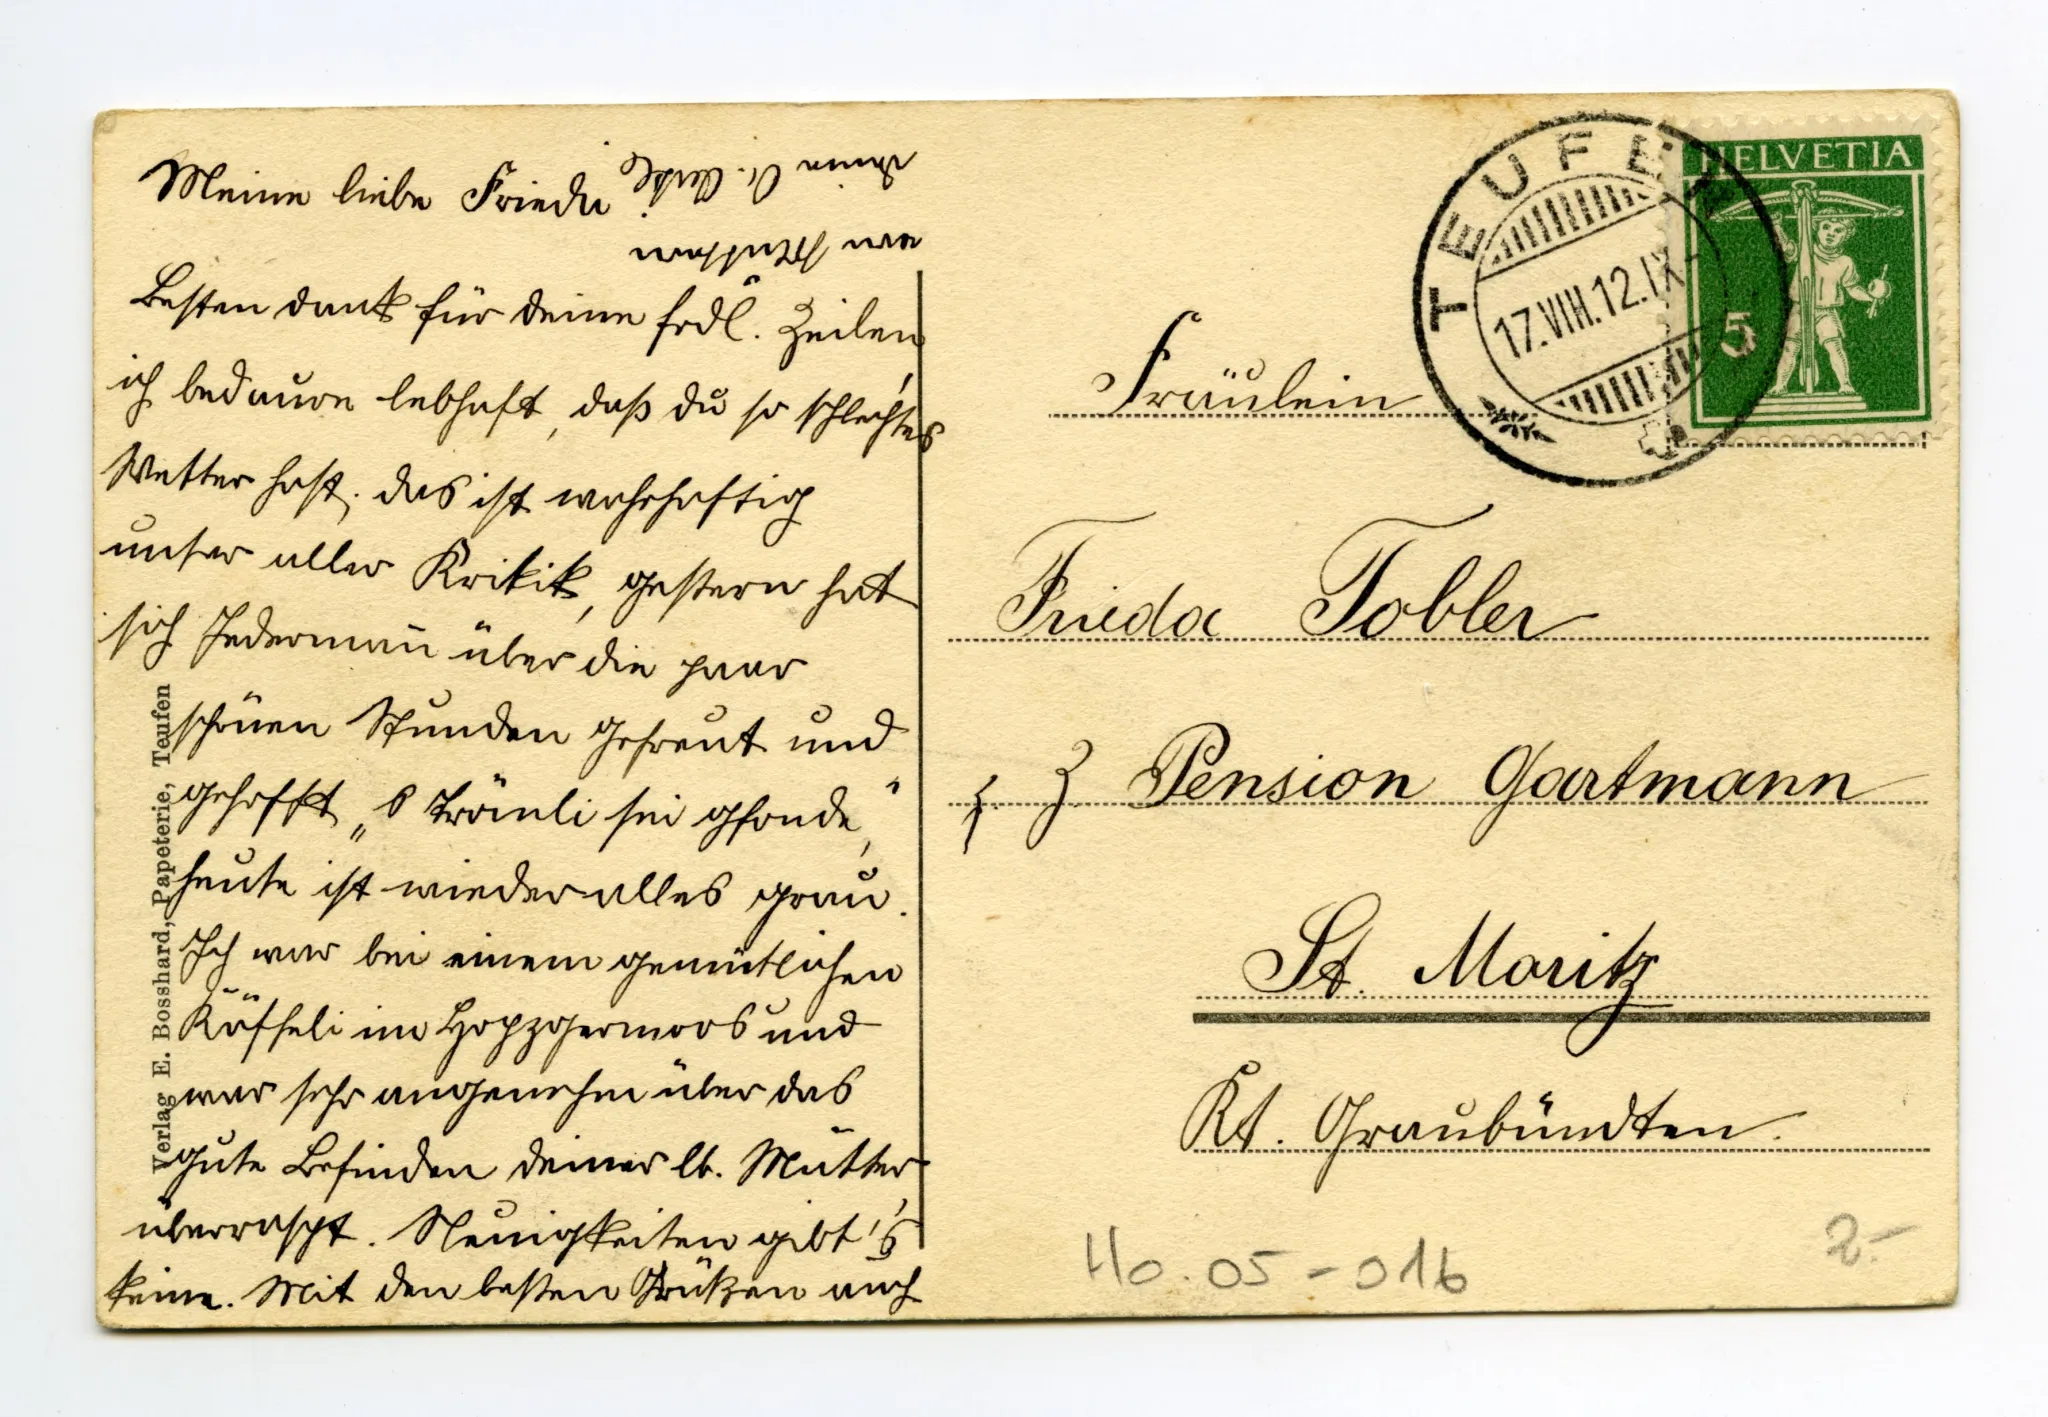 Meine liebe Frieda!
Besten Dank für deine frdl. Zeilen,
ich bedaure lebhaft, daß du so schlechtes
Wetter hast, das ist wahrhaftig
unser aller Kritik, gestern hat
sich Jedermañ über die paar
schönen Stunden gefreut und
gehofft „s Tränli sei gfonde",
heute ist wieder alles grau.
Ich war bei einem gemütlichen
Käffeli im Hopzgermoos und
war sehr angenehm über das
gute Befinden deiner lb. Mutter
überrascht. Neuigkeiten gibt's
keine. Mit den besten Grüßen auch
von
deine
Verlag E. Bosshard, Papeterie, Teufen
TEUFEN
17.VIII.12.IX-
HELVETIA
5
Fräulein
Frieda Tobler
z. Z. Pension Gartmann
St. Moritz
Kt. Graubündten.
Ho.05-016
2.-